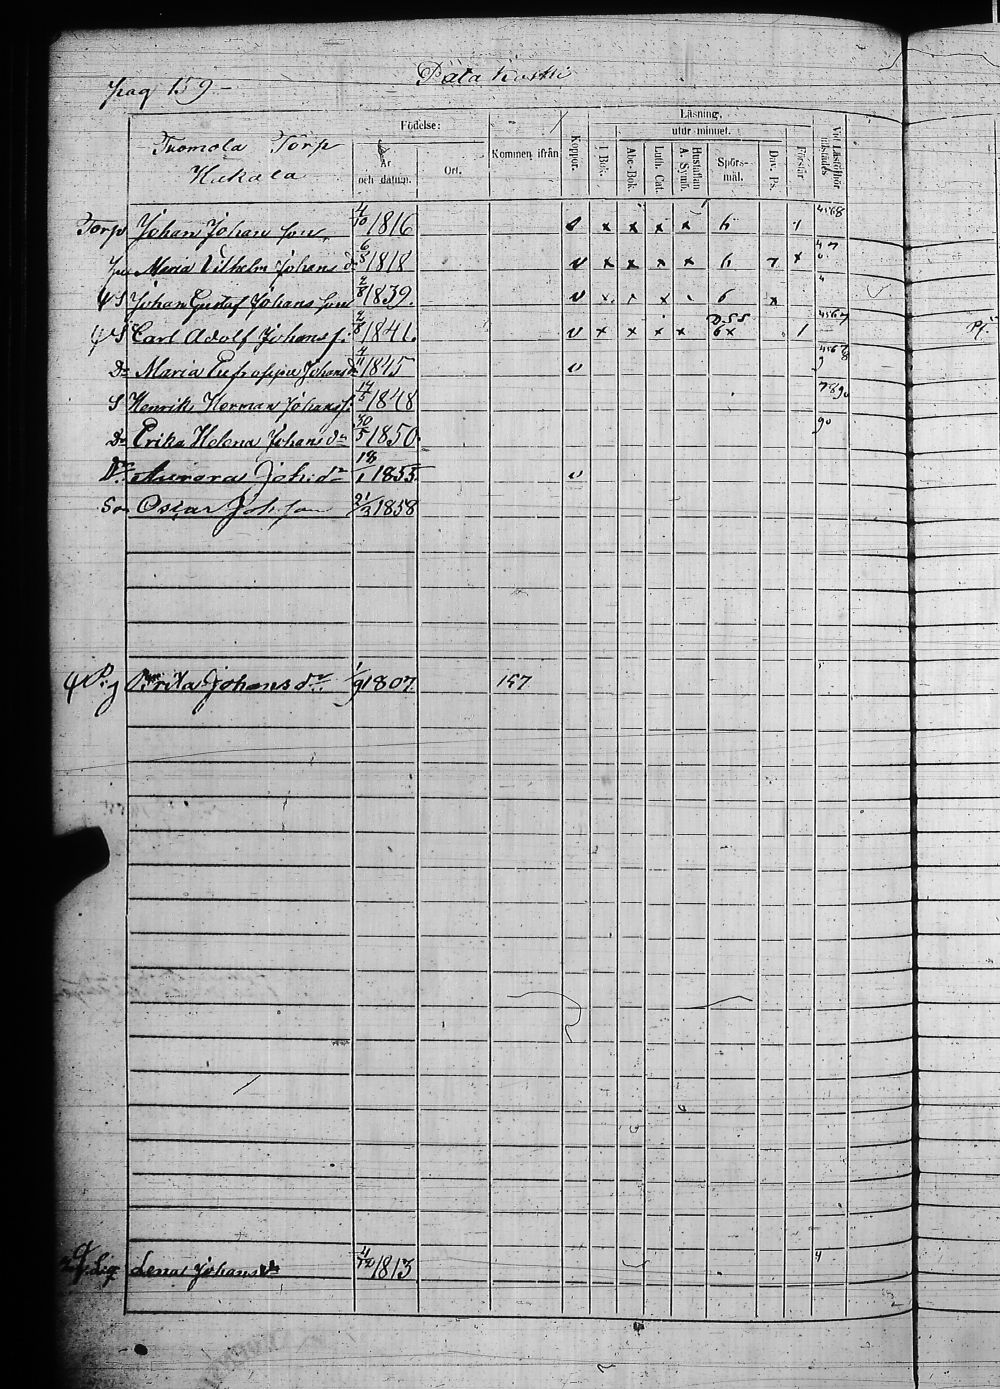 pag 159 -
Tuomola Torp
Hukala
Födelse:
År och datum.
Ort.
Kommen ifrån
Koppor.
Läsning,
utur minnet.
I Bok.
Abc-Bok
Luth. Cat.
Hustaflan A. Symb.
Spörs-mål.
Dav. Ps.
Förstår.
Vid Läsförhör tillstädes
Torp Johan Johan son 4/10 1816 v x x x x 6 1 4568
Maria Vilhelm Johans dr 6/3 1818 v x x x x 6 7 x 4 7
S Johan Gustaf Johans son 1839. v x x 6 x 4
S Carl Adolf Johans s. 1841. v x x x x 6x 1 4567
Dr Maria Johans dr 4/11 1845 v 4567 8 9
S Henrik Herman Johans s. 17/5 1848 789
Dr Erika Helena Johans dr 30/5 1850 90
Dr Aurora Joh: dr 18/1 1855 v
Son Oscar Joh son 21/3 1858
Pig Brita Johans dr 1/9 1807. 157
Lena Johans dr 4/12 1813 4